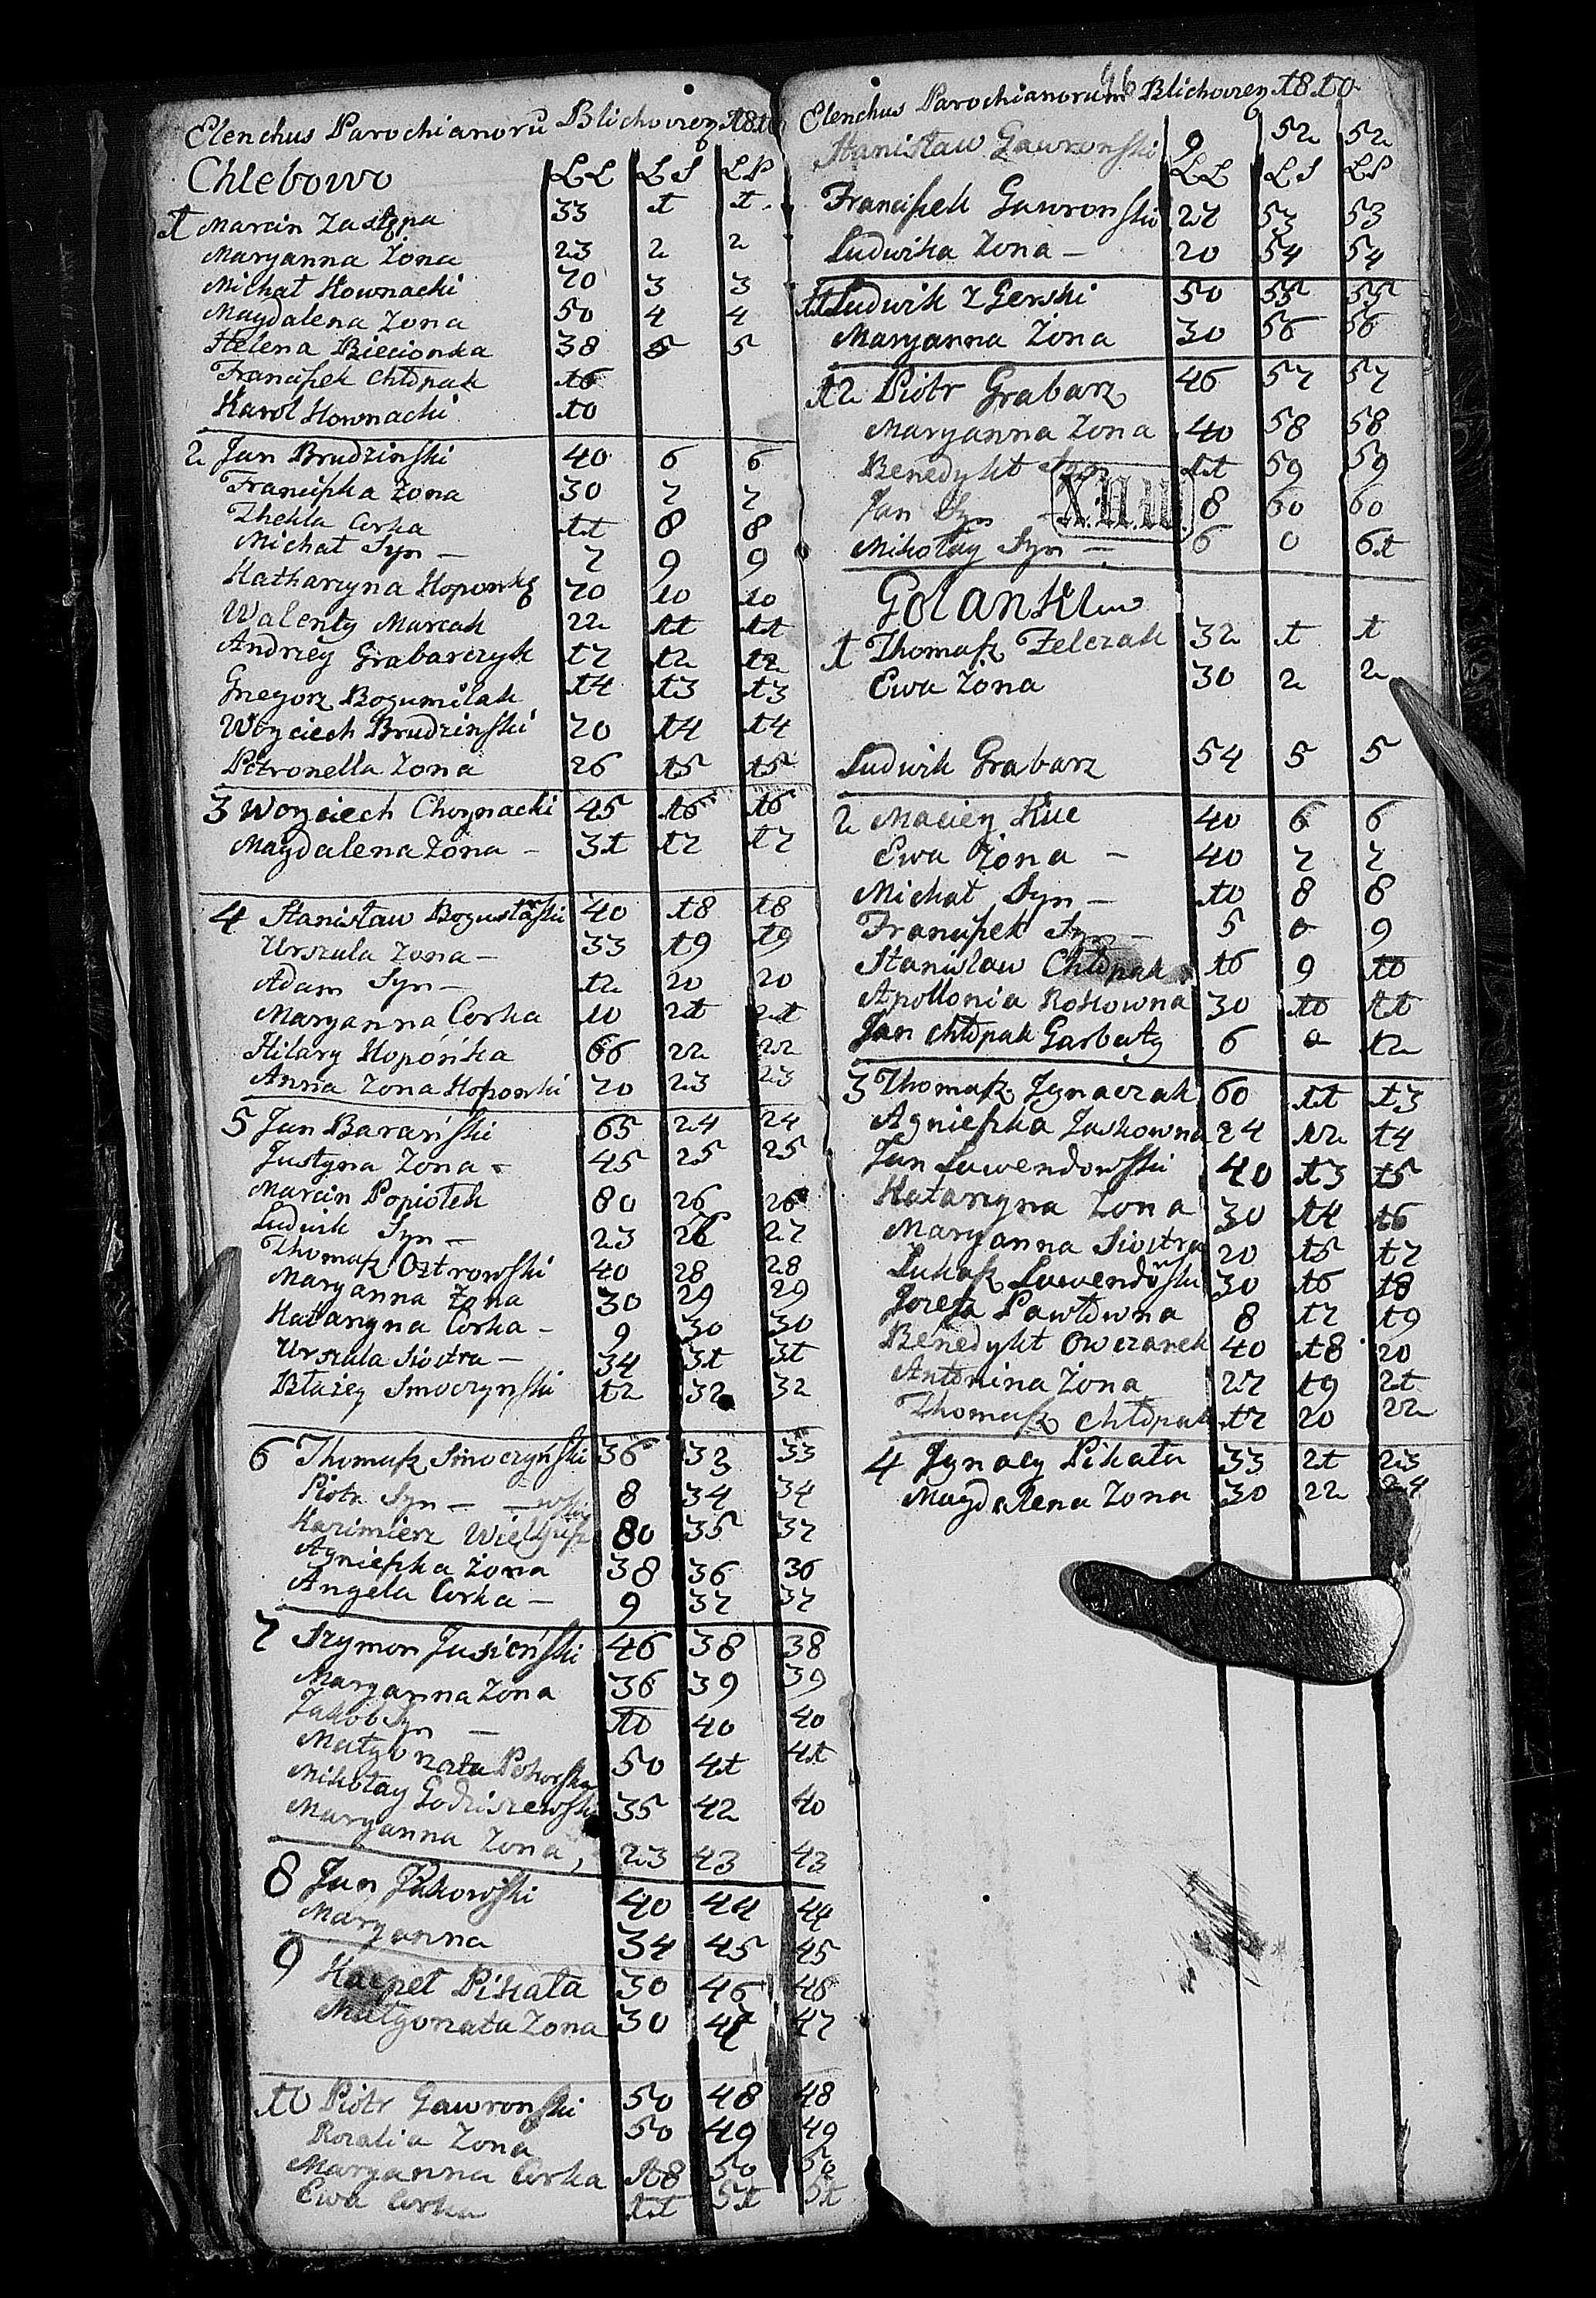 Elenchus Parochianorū Blichovien 1810
Chlebowo LL LS LP
1 Marcin Zastępa 33 1 1
Maryanna Zona 23 2 2
Michał Kownacki 70 3 3
Magdalena Zona 50 4 4
Helena Biecionka 38 5 5
Franciszek Chłopak 16
Karol Kownacki 10
2 Jan Brudzinski 40 6 6
Franciszka Zona 30 7 7
Thekla Corka 11 8 8
Michał Syn – 7 9 9
Katharzyna Koponką 70 10 10
Walenty Marcak 22 11 11
Andrzey Grabarczyk 17 12 12
Grzegorz Bogumilak 14 13 13
Woyciech Brudzinski 70 14 14
Petronella Zona 26 15 15
3 Woyciech Choynacki 45 16 16
Magdalena Zona – 31 17 17
4 Stanisław Bogusławski 40 18 18
Urszula Zona – 33 19 19
Adam Syn – 12 20 20
Maryanna Corka 10 21 21
Hilary Kopońka 66 22 22
Anna Zona Koponski 70 23 23
5 Jan Barański 65 24 24
Justyna Zona – 45 25 25
Marcin Popiołek 80 26 26
Ludwik Syn – 23 26 27
Thomasz Ostrowski 40 28 28
Maryanna Zona 30 29 29
Katarzyna Corka – 9 30 30
Urszula Siostra – 34 31 31
Błażey Smoczynski 12 32 32
6 Thomasz Smoczyński 36 33 33
Piotr Syn – 8 34 34
Kazimierz 80 35 37
Agnieszka Zona 38 36 36
Angela Corka – 9 37 37
7 Szymon Jusieński 46 38 38
Maryanna Zona 36 39 39
Jakob Syn – 10 40 40
Małgorzata 50 41 41
Mikołay Godziszewski 35 42 40
Maryanna Zona, 23 43 43
8 Jan Pakowski 40 44 44
Maryanna 34 45 45
9 Kacpet Pikata 30 46 46
Małgorzata Zona 30 47 47
10 Piotr Gawronski 50 48 48
Rozalia Zona 50 49 49
Maryanna Corka 18 50 50
Ewa Corka 11 51 51
46
Elenchus Parochianorum Blichovien 1810
Stanisław Gawronski 9 52 52
LL LS LP
Franciszek Gawronski 27 53 53
Ludwika Zona – 20 54 54
11 Ludwik Zgerski 50 55 55
Maryanna Zona 30 56 56
12 Piotr Grabarz 46 57 57
Maryanna Zona 40 58 58
Benedykt Syn 11 59 59
Jan Syn 8 60 60
Mikołay Syn – 6 0 61
Golanki
1 Thomasz Zelczak 32 1 1
Ewa Zona 30 2 2
Ludwik Grabarz 54 5 5
2 Maciey Kuc 40 6 6
Ewa Zona – 40 7 7
Michał Syn – 10 8 8
Franciszek Syn – 5 0 9
Stanisław Chłopak 16 9 10
Apollonia Rokowna 30 10 11
Jan Chłopak Garbaty 6 0 12
3 Thomasz Jgnaczak 60 11 13
Agnieszka Jaskowna 24 12 14
Jan Lewendowski 40 13 15
Katarzyna Zona 30 14 16
Maryanna Siostra 20 15 17
Łukasz Lewendowski 30 16 18
Jozefa Pawłowna 8 17 19
Benedykt Owczarek 40 18 20
Antonina Zona 27 19 21
Thomasz Chłopak 17 20 22
4 Jgnacy Pikata 33 21 23
Magdalena Zona 30 22 24